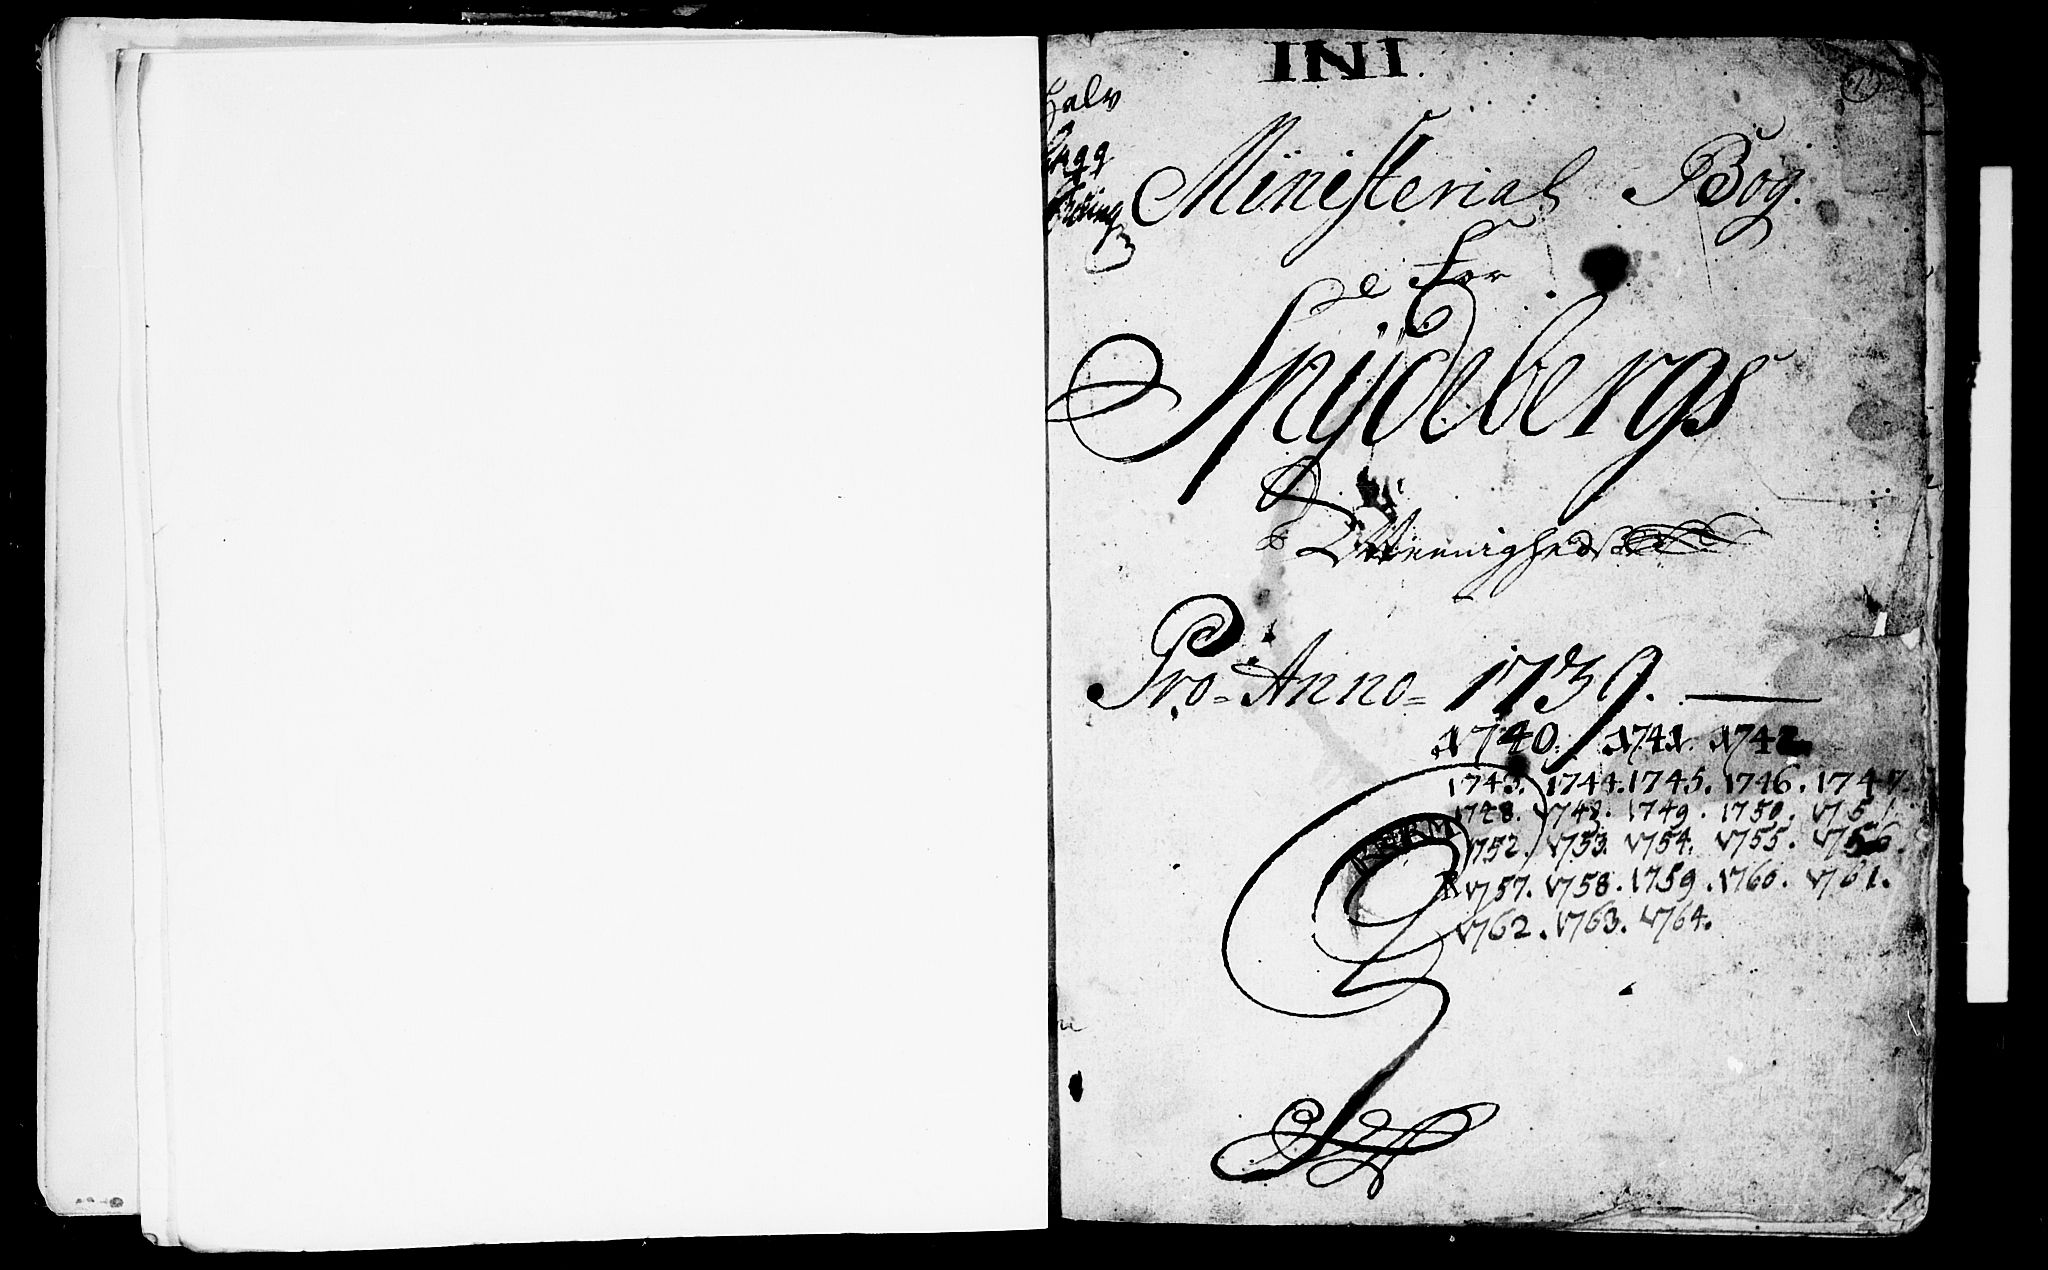 INI.
1.
Halv
Ministerial Bog.
For
Spÿdebergs
Meenighed
Pro = Anno = 1739.
1740. 1741. 1742.
1743. 1744. 1745. 1746. 1747.
1748. 1748. 1749. 1750. 1751.
1752. 1753. 1754. 1755. 1756.
1757. 1758. 1759. 1760. 1761.
1762. 1763. 1764.